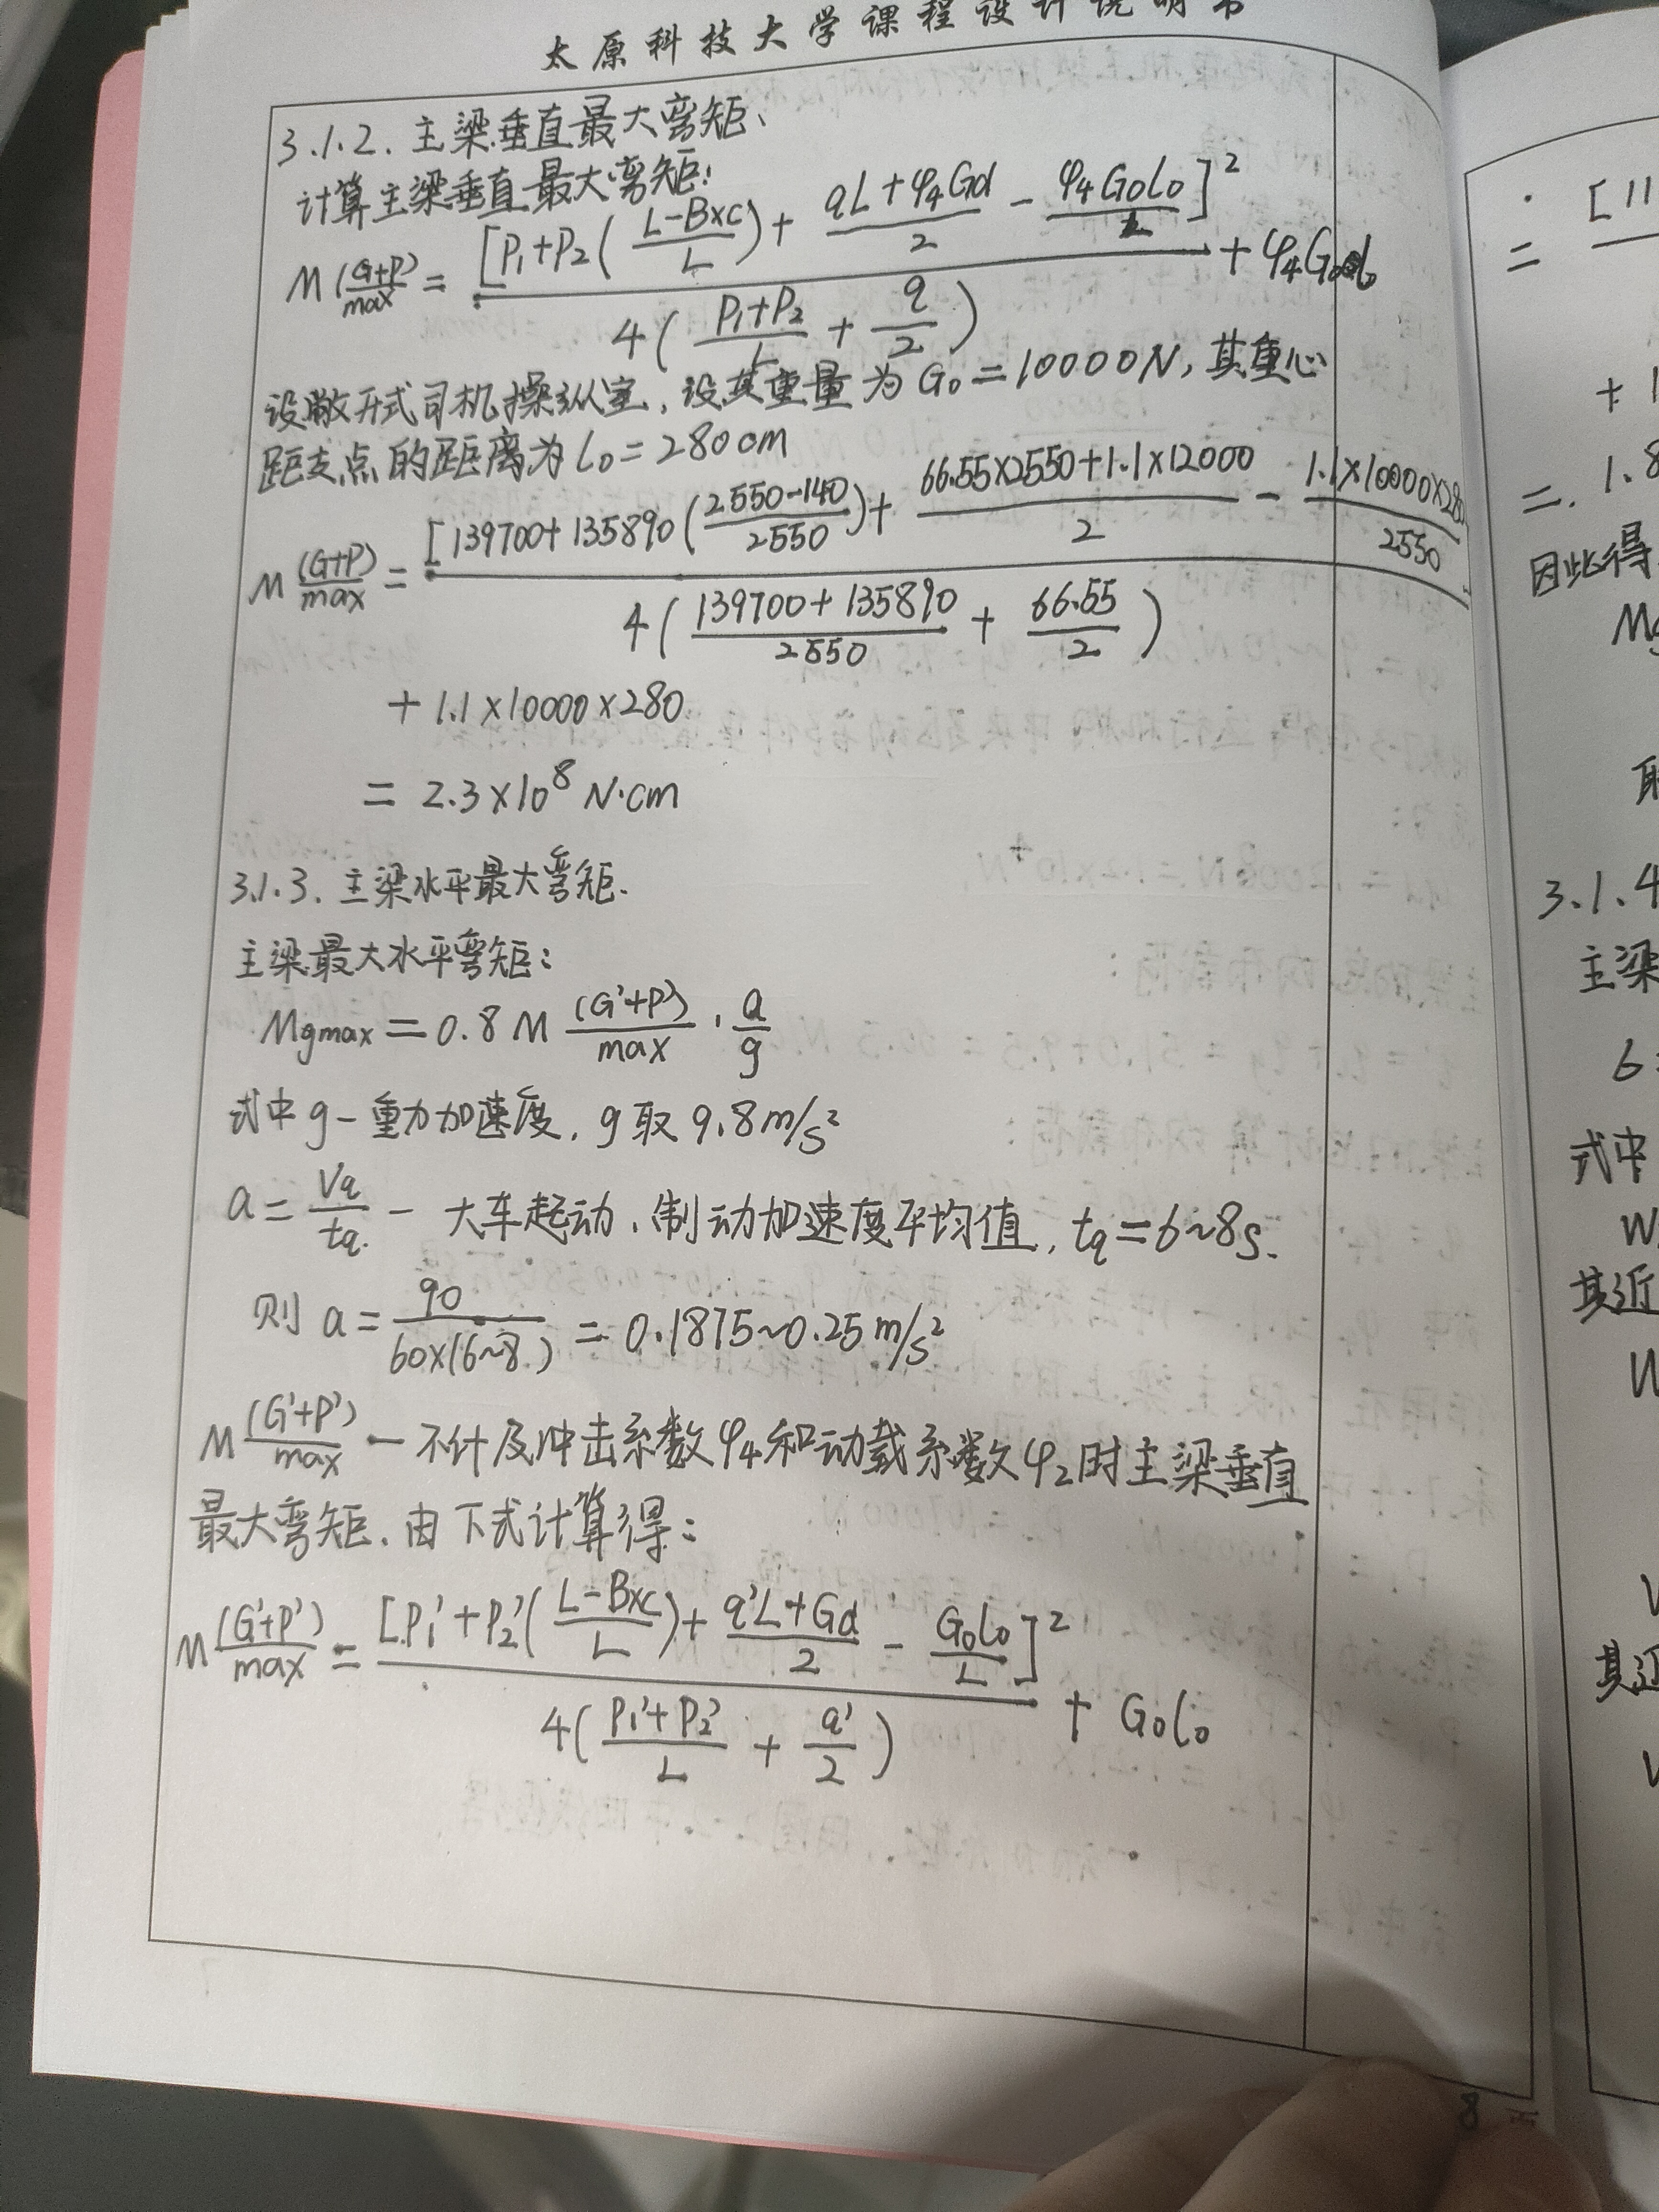 太原科技大学课程设计说明书
3.1.2. 主梁垂直最大弯矩、
计算主梁垂直最大弯矩:
M(G+P)/max = [P₁+P₂((L-Bxc)/L)+(qL+φ₄Gd)/2-(φ₄G₀l₀)/L]²/4((P₁+P₂)/L+q/2)+φ₄G₀l₀
设敞开式司机操纵室, 设其重量为G₀=10000N, 其重心
距支点的距离为l₀=280cm
M(G+P)/max = [139700+135890((2550-140)/2550)+(66.55×2550+1.1×12000)/2-(1.1×10000×280)/2550/4((139700+135890)/2550+66.55/2)
+1.1×10000×280
= 2.3×10⁸ N·cm
3.1.3. 主梁水平最大弯矩.
主梁最大水平弯矩:
Mgmax=0.8M(G'+P)/max·a/g
式中g-重力加速度, g取9.8m/s²
a=Vq/tq.- 大车起动、制动加速度平均值, tq=6~8s.
则 a=90/60×(6~8)=0.1875~0.25m/s²
M(G'+P')/max-不计及冲击系数φ₄和动载系数φ₂时主梁垂直
最大弯矩. 由下式计算得:
M(G'+P')/max=[P₁'+P₂'((L-Bxc)/L)+(q'L+Gd)/2-(G₀l₀)/L]²/4((P₁'+P₂')/L+q'/2)+G₀l₀
8
= [11
+ 1
=. 1.8
因此得
3.1.4
主梁
6
式中
W
其近
W